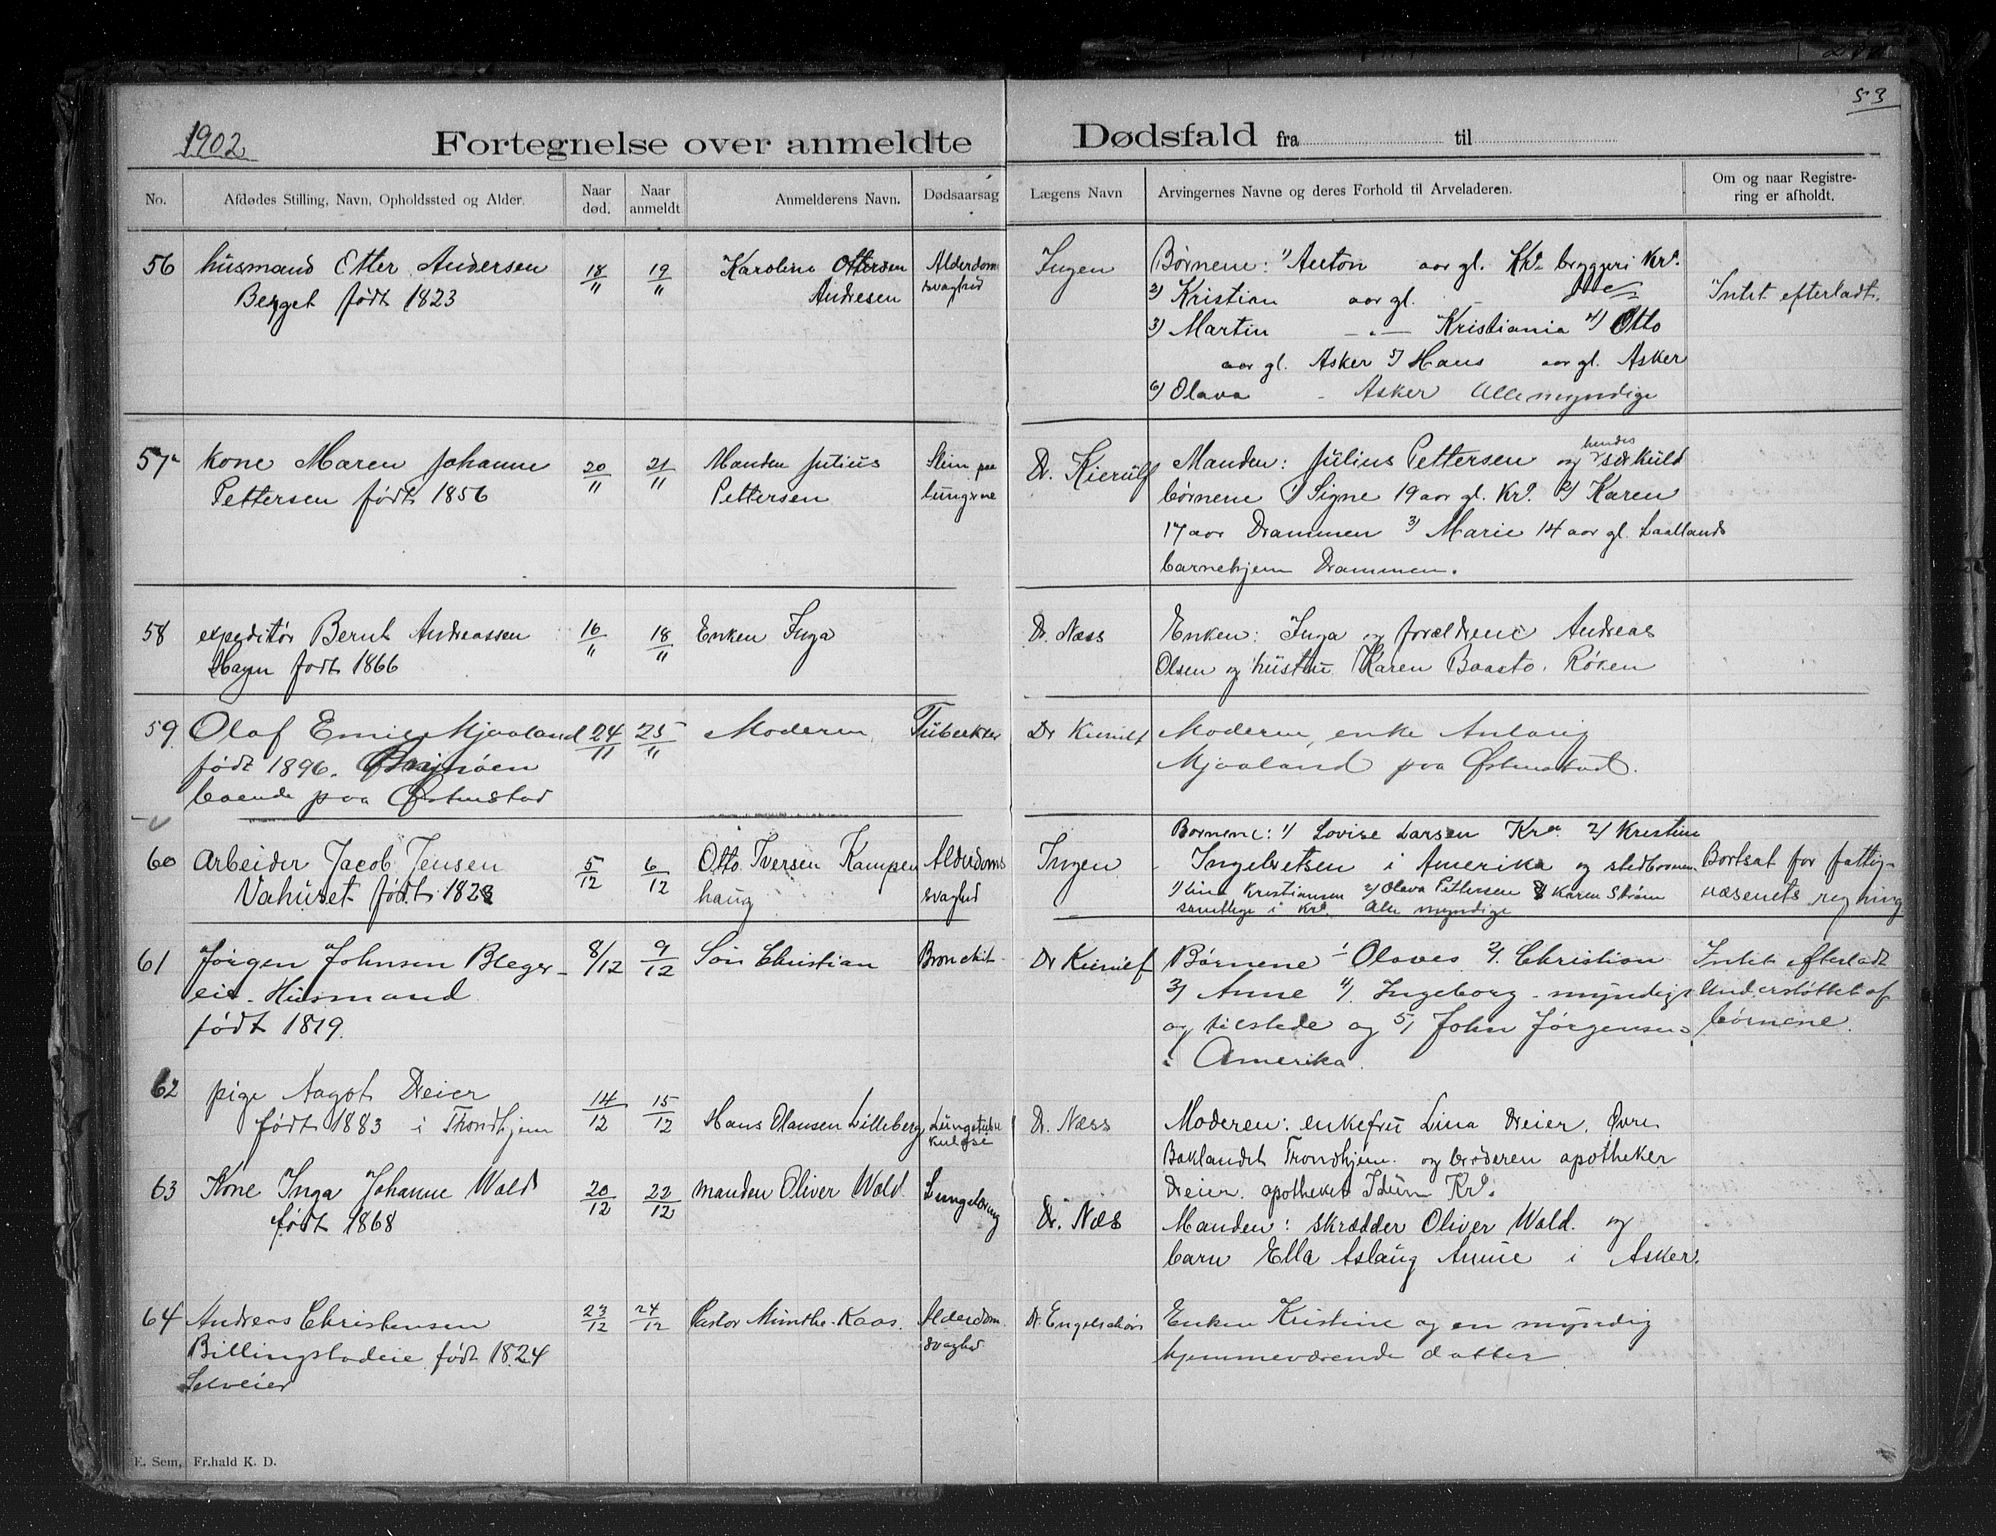 53
1902
Fortegnelse over anmeldte Dødsfald fra til
No. Afdødes Stilling, Navn, Opholdssted og Alder. Naar død. Naar anmeldt Anmelderens Navn. Dødsaarsag Lægens Navn Arvingernes Navne og deres Forhold til Arveladeren. Om og naar Registrering er afholdt.
56 husmand Otter Andersen 18/11 19/11 Karoline Ottersen Alderdom Ingen Børnene: 1) Anton aar gl. Kra bryggeri Kra.
Berget født 1823 Andresen svaghed 2) Kristian aar gl. Intet efterladt.
3) Martin Kristiania 4) Otto
aar gl. Asker 5) Hans aar gl. Asker
6) Olava Asker Alle myndige
57 Kone Maren Johanne 20/11 21/11 Manden Julius Slim paa Dr. Kierulf Manden: Julius Pettersen og hendes særkuld
Pettersen født 1856 Pettersen lungerne børnene 1) Signe 19 aar gl. Kra. 2) Karen
17 aar Drammen 3) Marie 14 aar gl.
barnehjem Drammen.
58 expeditør Bernt Andreassen 16/11 18/11 Enken Inga Dr. Næss Enken: Inga og forældrene Andreas
født 1866 Olsen og hustru Karen Baasto. Røken
59 Olaf Emil Mjaaland 24/11 25/11 Moderen Tuberkler Dr Kierulf Moderen, enke Anlaug
født 1896. Mjaaland paa Østenstad.
boende paa Østenstad
60 Arbeider Jacob Jensen 5/12 6/12 Otto Iversen Kampen Alderdoms Ingen Børnene: 1) Lovise Larsen Kra 2) Kristine
Vahuset født 1828 haug svaghed Ingebretsen i Amerika og stedbørnene Bortsat for fattig-
1) Lina Kristiansen 2) Olava Pettersen 3) Karen Strøm væsenets regning
samtlige i Kra. Alle myndige
61 Jørgen Johnsen Bleger- 8/12 9/12 Søn Christian Bronchit Dr Kierulf Børnene 1 Olaves 2/ Christian Intet efterladt
eie. Husmand 3/ Anne 4/ Ingeborg - myndige Understøttet af
født 1819. og tilstede og 5/ John Jørgensen børnene.
i Amerika.
62 pige Aagot Dreier 14/12 15/12 Hans Olausen Lilleberg Lungetuber Dr. Næss Moderen: enkefru Lina Dreier, Øvre
født 1883 i Trondhjem kulose Baklandet Trondhjem. og broderen apotheker
Dreier. apotheket Idun Kra.
63 Kone Inga Johanne Wold 20/12 22/12 manden Oliver Wold Dr. Næs Manden: skrædder Oliver Wold. og
født 1868 barn Ella Aslaug Anne i Asker.
64 Andreas Christensen 23/12 24/12 Pastor Munthe-Kaas. Alderdom Dr. Engelschiøn Enken Kristine og en myndig
Billingstadeie født 1824 svaghed hjemmeværende datter
Selveier
E. Sem, Fr.hald K. D.